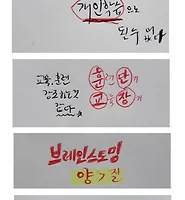 개인학습으로
될수 없다
교육, 훈련
강조하는것
같다
훈련단기
교육장기
브레인스토밍
양 > 질